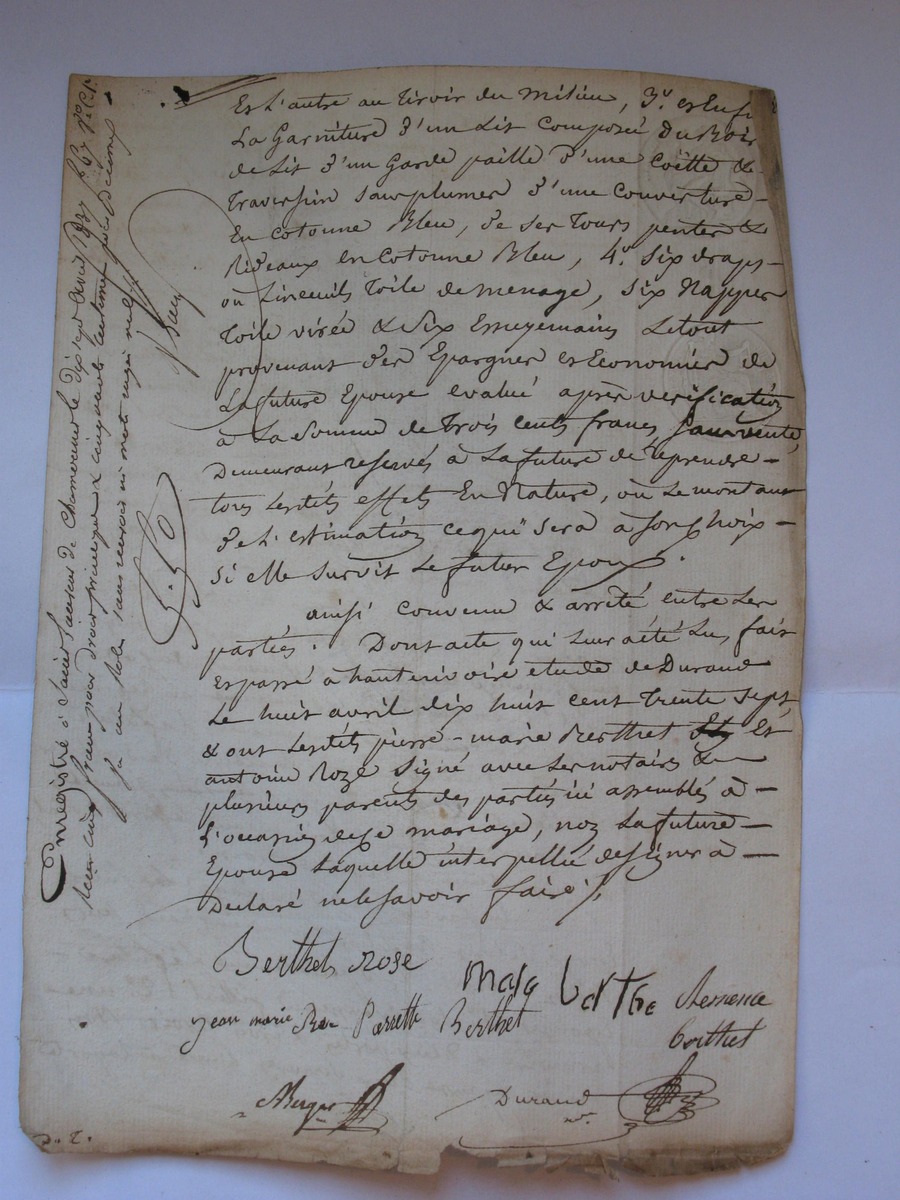 Est l'autre au tiroir du milieu, 3.º et Enf
La Garniture d'un Lit Composée Du Bois
de Lit d'un Garde paille d'une Coëtte &
Traversin sans plumes d'une Couverture
En Cotonne Bleu, de ses Tours pentes &
Rideaux en Cotonne Bleu, 4.º Six draps
ou Linceuils toile de menage, Six Nappes
toile virée & Six Essuyemains Le tout
provenant des Epargnes et Economies de
La future Epouse evalué après verification
à La Somme de trois cents francs Sans vente,
Demeurant reservés à La future de reprendre
tous Lesdits effets En Nature, où Le montant
de L'estimation ce qui sera à son choix
si elle survit Le futur Epoux.
ainsi Convenu & arrêté entre Les
parties. Dont acte qui Leur a été Lu, fait
Et passé à hauterivoire etude de Durand
Le huit avril dix huit cent trente sept,
& ont Lesdits pierre-marie Berthet Et
antoine Roze Signé avec Les notaires &
plusieurs parents des parties ici assemblés à
L'occasion de ce mariage, non La future
Epouse Laquelle interpellée de signer à
Declaré ne le savoir faire /.
Berthet rose
mara berthe
Clemence
berthet
jean marie Roze Pierrette Berthet
Berger
Durand
nre.
D. T.
Enregistré à Saint Laurent de Chamousset le dix sept avril 1837 fº 67 Rº Cº 1er
Reçu cinq francs pour droit principal & cinquante centimes pour décime